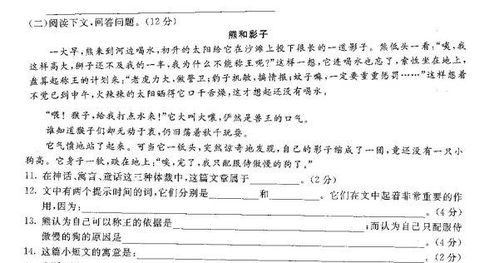 (二)阅读下文,回答问题。(12分)
熊和影子
一大早,熊来到河边喝水,初升的太阳给它在沙滩上投下很长的一道影子。熊低头一看:“噢,我
这样高大,狮子还不及我的一半,我为什么不能称王呢?”这样一想,它连喝水也忘了,索性坐在地上,
盘算起称王的计划来:“老虎力大,做警卫;豹子机敏,搞情报;蚊子嘛,一定要重重惩罚……”这样想着
不觉已到中午,火辣辣的太阳晒得它口干舌燥,这才想起还没有喝水。
“喂!猴子,给我打点水来!”它大叫大嚷,俨然是兽王的口气。
谁知道猴子们却无动于衷,仍旧荡着秋千玩耍。
它气愤地站了起来。可当它一低头,突然惊奇地发现,自己的影子缩成了一团,竟还没有一只小
狗高。它身子一软,跌在地上:“唉,完了,我只配服侍傲慢的狗了。”
11. 在神话、寓言、童话这三种体裁中,这篇文章属于________。(2分)
12. 文中有两个提示时间的词,它们分别是________和________。它们在文中起着非常重要的作
用,因为:________。(4分)
13. 熊认为自己可以称王的依据是________;而认为自己只配服侍
傲慢的狗的原因是________。(4分)
14. 这篇小短文的寓意是:________。(2分)